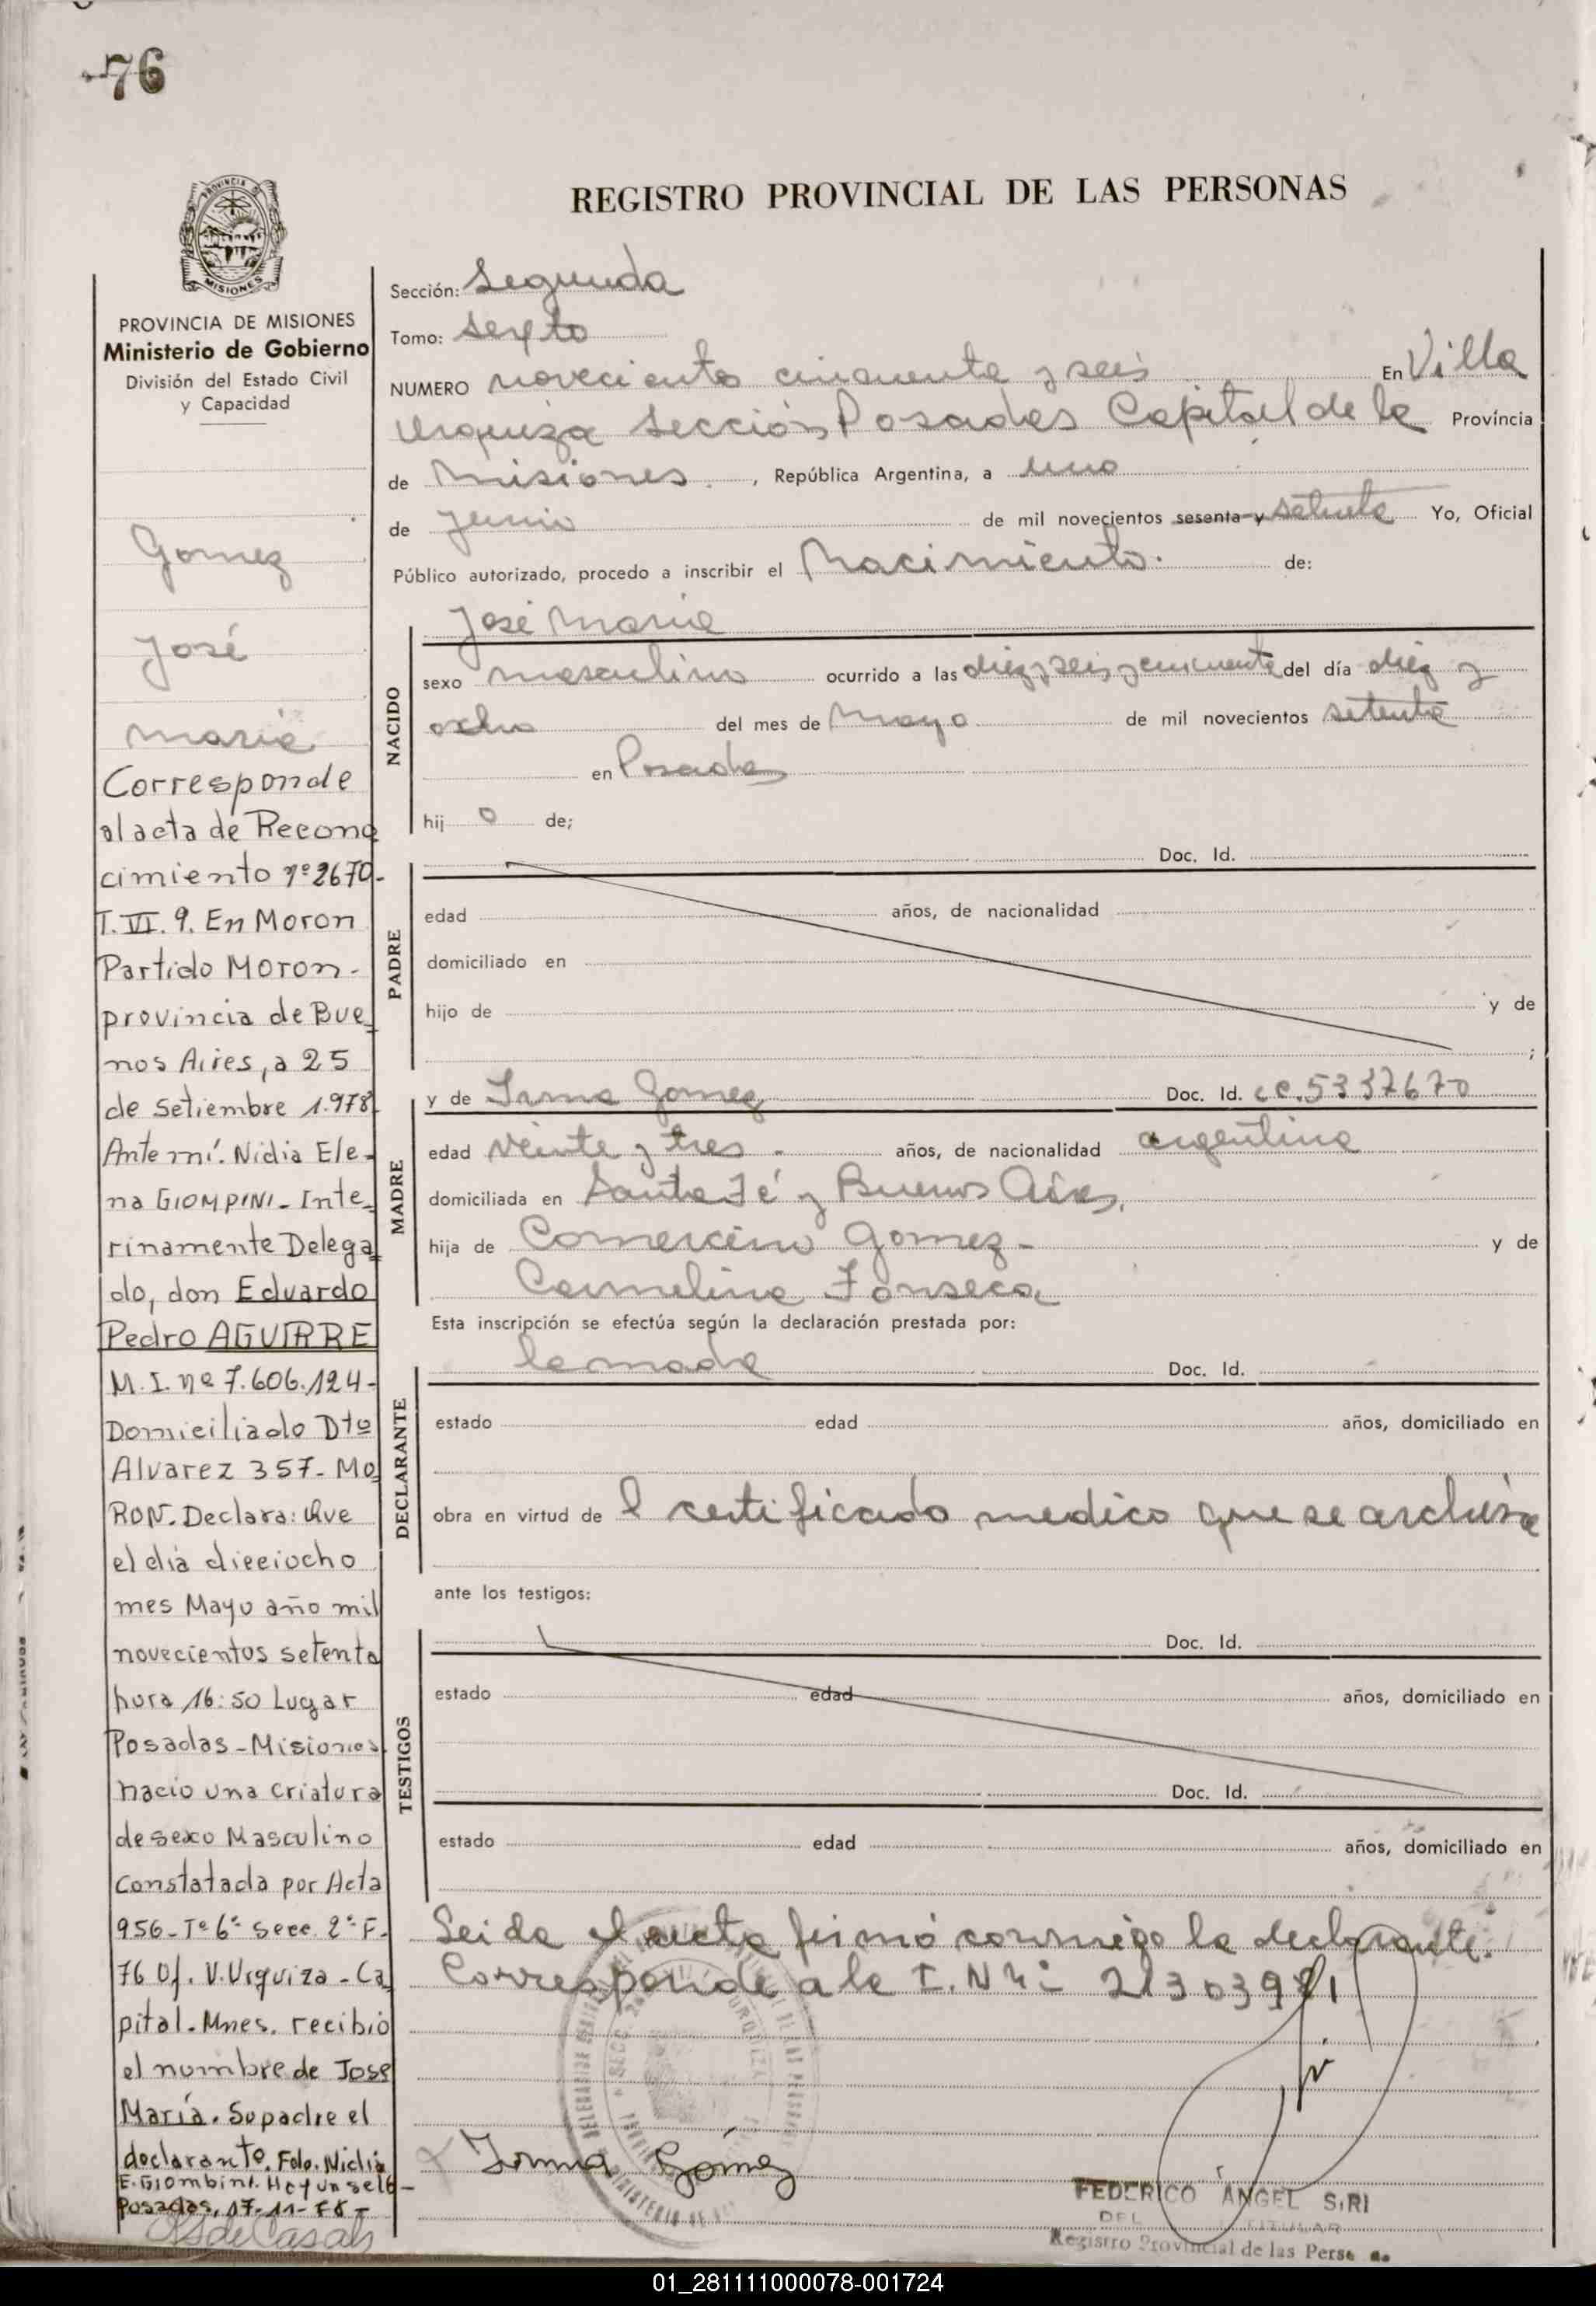 76
REGISTRO PROVINCIAL DE LAS PERSONAS
MISIONES
PROVINCIA DE MISIONES
Ministerio de Gobierno
División del Estado Civil
y Capacidad
Gomez
José
Maria
Corresponde
al acta de Recono
cimiento nº 2670-
T. VI. 9. En Moron
Partido Moron-
provincia de Bue_
nos Aires, a 25
de Setiembre 1.978
Ante mí. Nidia Ele-
na GIOMPINI- Inte_
rinamente Delega
do, don Eduardo
Pedro AGUIRRE
M.I. nº 7.606.124-
Domiciliado Dto
Alvarez 357- Mo
RON. Declara: Que
el día dieciocho
mes Mayo año mil
novecientos setenta
hora 16:50 Lugar
Posadas-Misiones
nacio una criatura
de sexo Masculino
constatada por Acta
956-Tº 6º secc. 2º F.
76 Of. V. Urquiza-Ca
pital. Mnes. recibio
el nombre de Jose
María. Su padre el
declarante. Fdo. Nidia
E. Giombini. Hay un sello-
Posadas, 17-11-78-
Sección: Segunda
Tomo: Sexto
NUMERO novecientos cincuenta y seis En Villa
Urquiza Sección Posadas Capital de la Provincia
de Misiones , República Argentina, a uno
de Junio de mil novecientos sesenta y setenta Yo, Oficial
Público autorizado, procedo a inscribir el Nacimiento de:
José Maria
NACIDO
sexo masculino ocurrido a las diez y seis y cincuenta del día diez y
ocho del mes de Mayo de mil novecientos setenta
en Posadas
hij o de;
PADRE
Doc. Id.
edad años, de nacionalidad
domiciliado en
hijo de y de
;
MADRE
y de Irma Gomez Doc. Id. CC.5337670
edad veinte y tres - años, de nacionalidad argentina
domiciliada en Santa Fé y Buenos Aires,
hija de Comercino Gomez- y de
Carmelina Fonseca
Esta inscripción se efectúa según la declaración prestada por:
DECLARANTE
la madre Doc. Id.
estado edad años, domiciliado en
obra en virtud de l certificado medico que se archiva
ante los testigos:
TESTIGOS
Doc. Id.
estado edad años, domiciliado en
Doc. Id.
estado edad años, domiciliado en
Leida el acta firmó conmigo la declarante.
Corresponde a la I.N Nº: 21303981
Irma Gómez
FEDERICO ANGEL SIRI
TITULAR
Registro Provincial de las Pers
01_281111000078-001724